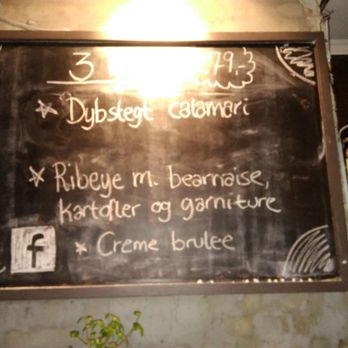 3 79,-
* Dybstegt calamari
* Ribeye m. bearnaise,
kartofler og garniture
* Creme brulee
f